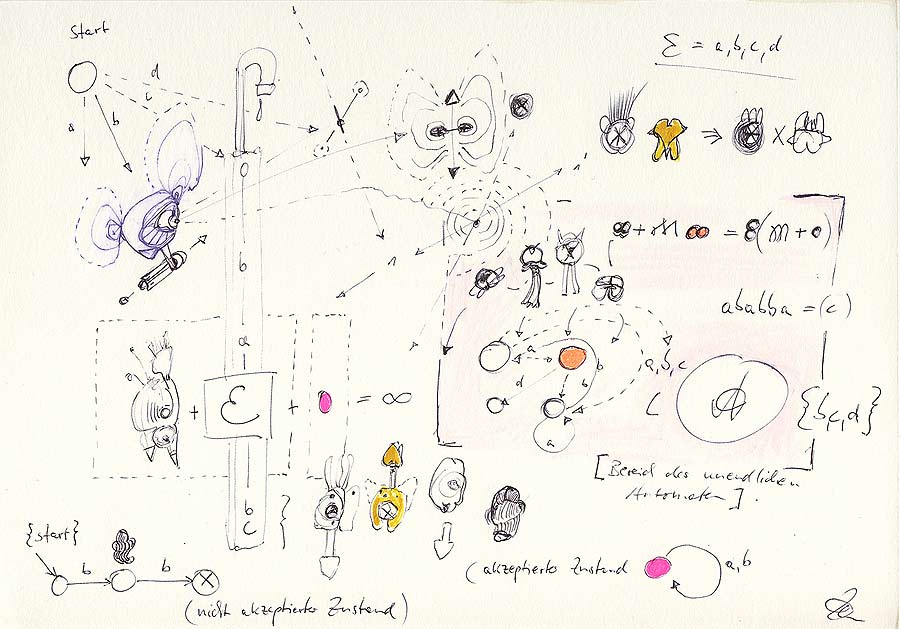 Start
Σ = a, b, c, d
d
c
a
b
0
b
a
b
c
+ m = 8(m + •)
ababba = (c)
a
b
a, b, c
d
b
a
L
{b, c, d}
+ Ɛ + = ∞
[Bereich des unendlichen
Automaten].
{start}
b
b
(nicht akzeptierter Zustand)
(akzeptierter Zustand
a, b